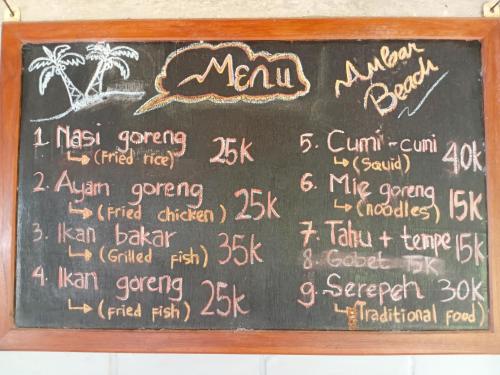 Menu
Ambar
Beach
1. Nasi goreng 25K
(Fried rice)
2. Ayam goreng 25K
(Fried chicken)
3. Ikan bakar 35K
(Grilled fish)
4. Ikan goreng 25K
(Fried fish)
5. Cumi-cuni 40K
(Squid)
6. Mie goreng 15K
(noodles)
7. Tahu + tempe 15K
8. Gobet 15K
9. Serepeh 30K
(Traditional food)